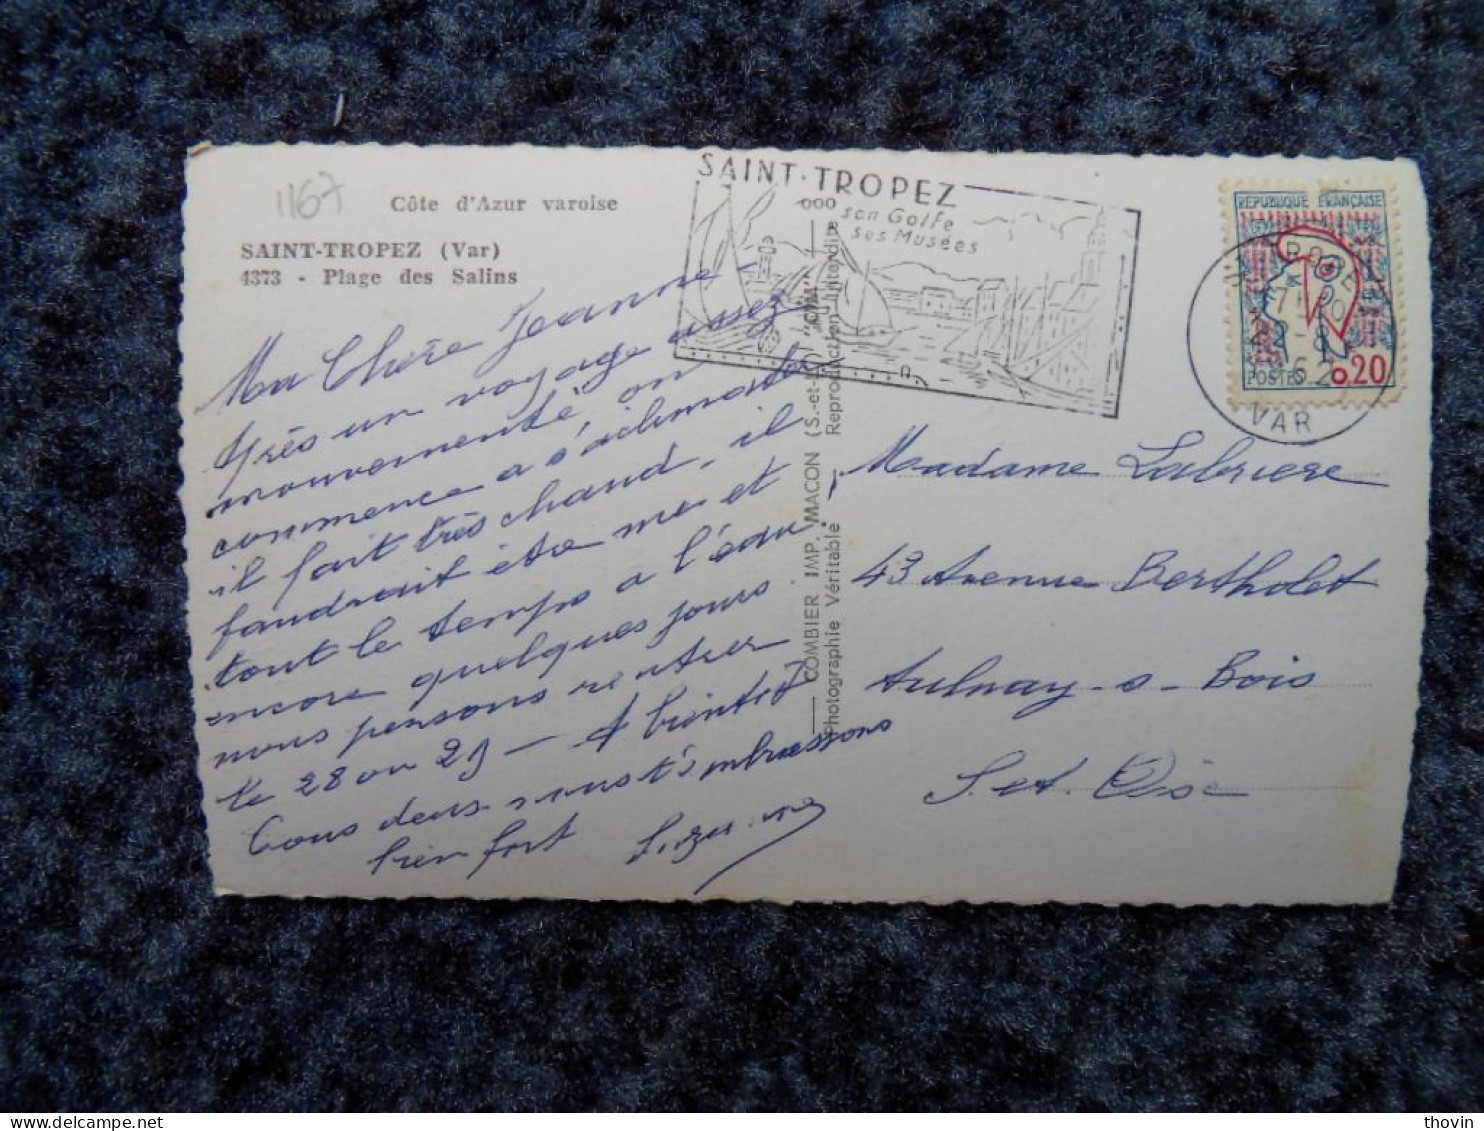 1167
Côte d'Azur varoise
SAINT-TROPEZ (Var)
4373 - Plage des Salins
Ma Chère Jeanne -
Après un voyage assez
mouvementé on
commence a s'aclimater
il fait très chaud, il
faudrait être me et
tout le temps a l'eau,
encore quelques jours
nous pensons rentrer
le 28 ou 29 - A bientôt
Tous deux nous t'embrassons
bien fort Suzanne
COMBIER IMP. MACON (S.-et-L.) "CIM"
Photographie Véritable - Reproduction interdite
SAINT-TROPEZ
son Golfe
ses Musées
RÉPUBLIQUE FRANÇAISE
POSTES 0.20
VAR
Madame Labriere
43 Avenue Bertholet
Aulnay-s-Bois
S. et. Oise
thovin